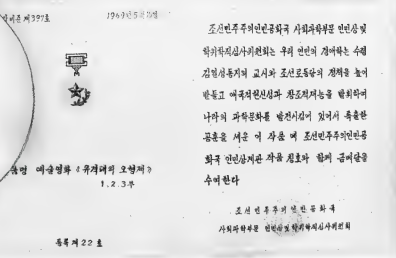 제397호
1969년 5월 15일
예술영화 《유격대의 오형제》
1. 2. 3부
등록 제 22 호
조선민주주의인민공화국 사회과학부문 인민상 및
학위학직심사위원회는 우리 인민의 경애하는 수령
김일성동지의 교시와 조선로동당의 정책을 높이
받들고 애국적헌신성과 창조적재능을 발휘하여
나라의 과학문화를 발전시킴에 있어서 특출한
공훈을 세운 이 작품에 조선민주주의인민공
화국 인민상계관 작품 칭호와 함께 금메달을
수여한다
조선민주주의인민공화국
사회과학부문 인민상 및 학위학직심사위원회